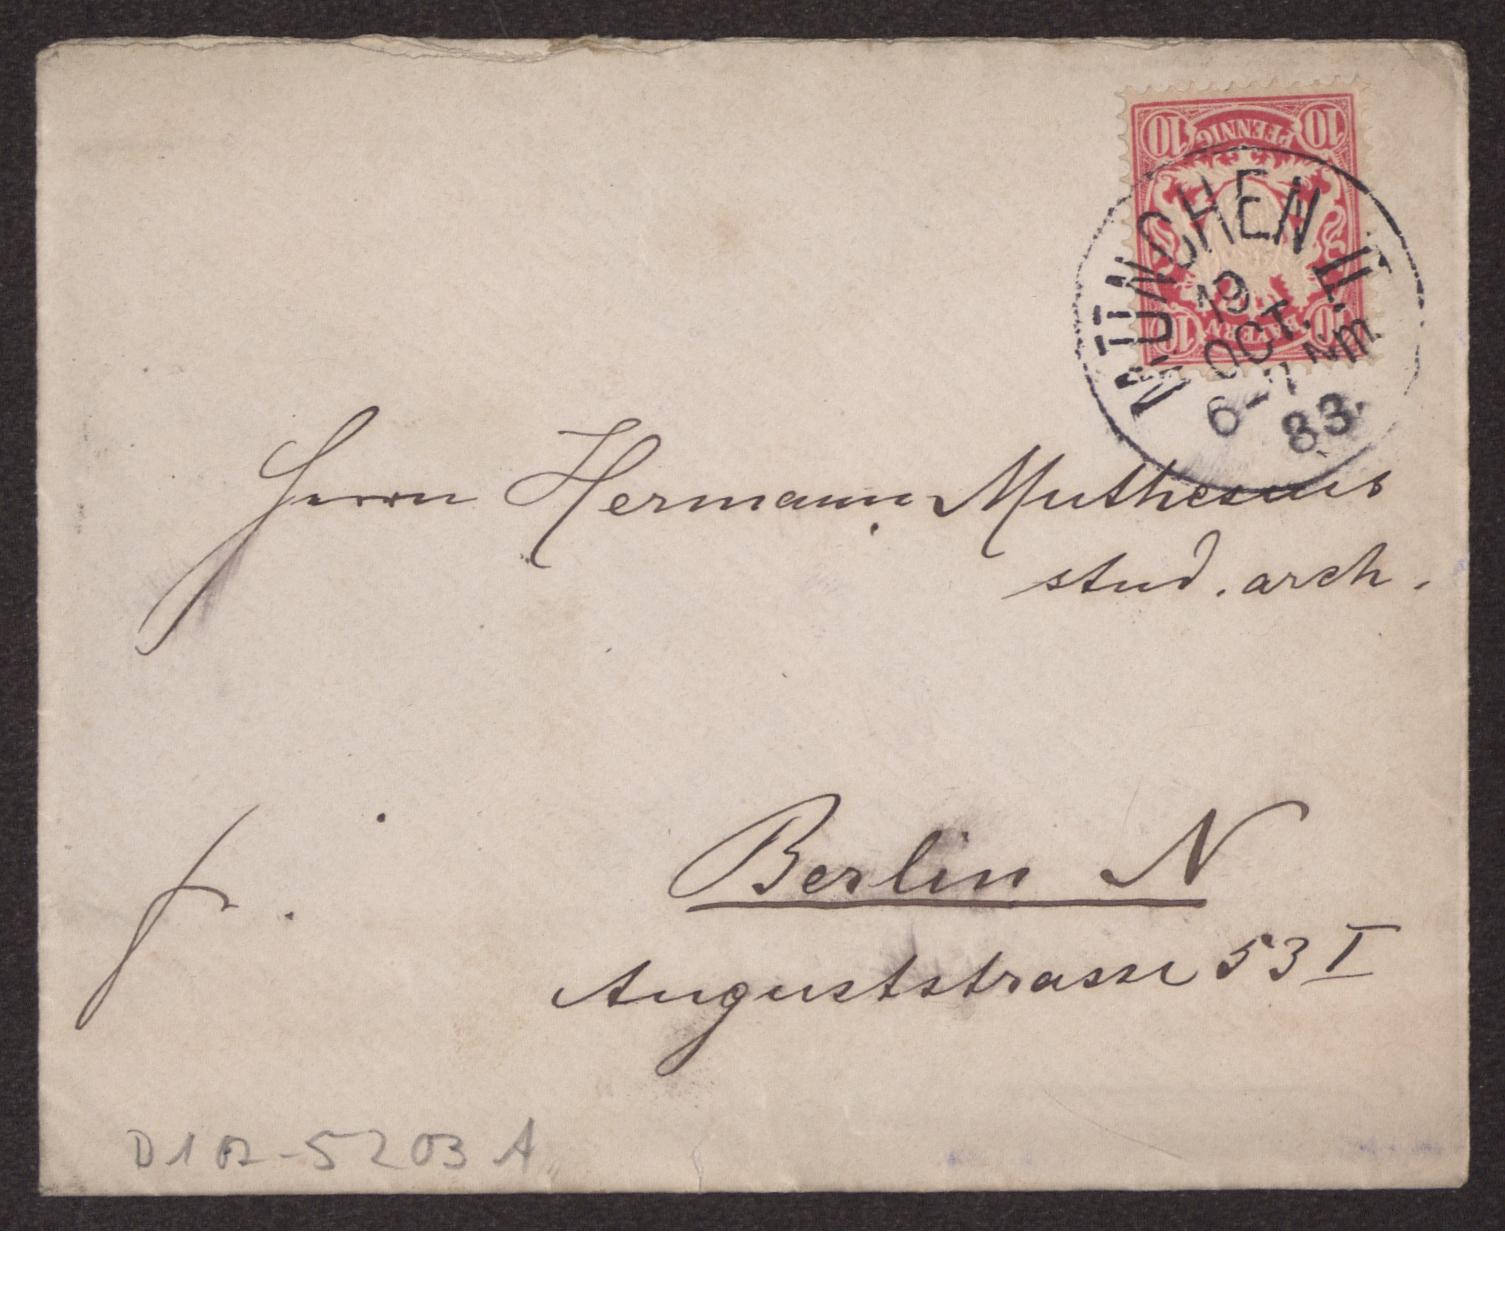 10 PFENNIG 10
BAYERN
10 10
MÜNCHEN II.
19
OCT.
6-7 Nm.
83.
Herrn Hermann Muthesius
stud. arch.
fr.
Berlin N
Auguststrasse 53 I
D102-5203 A